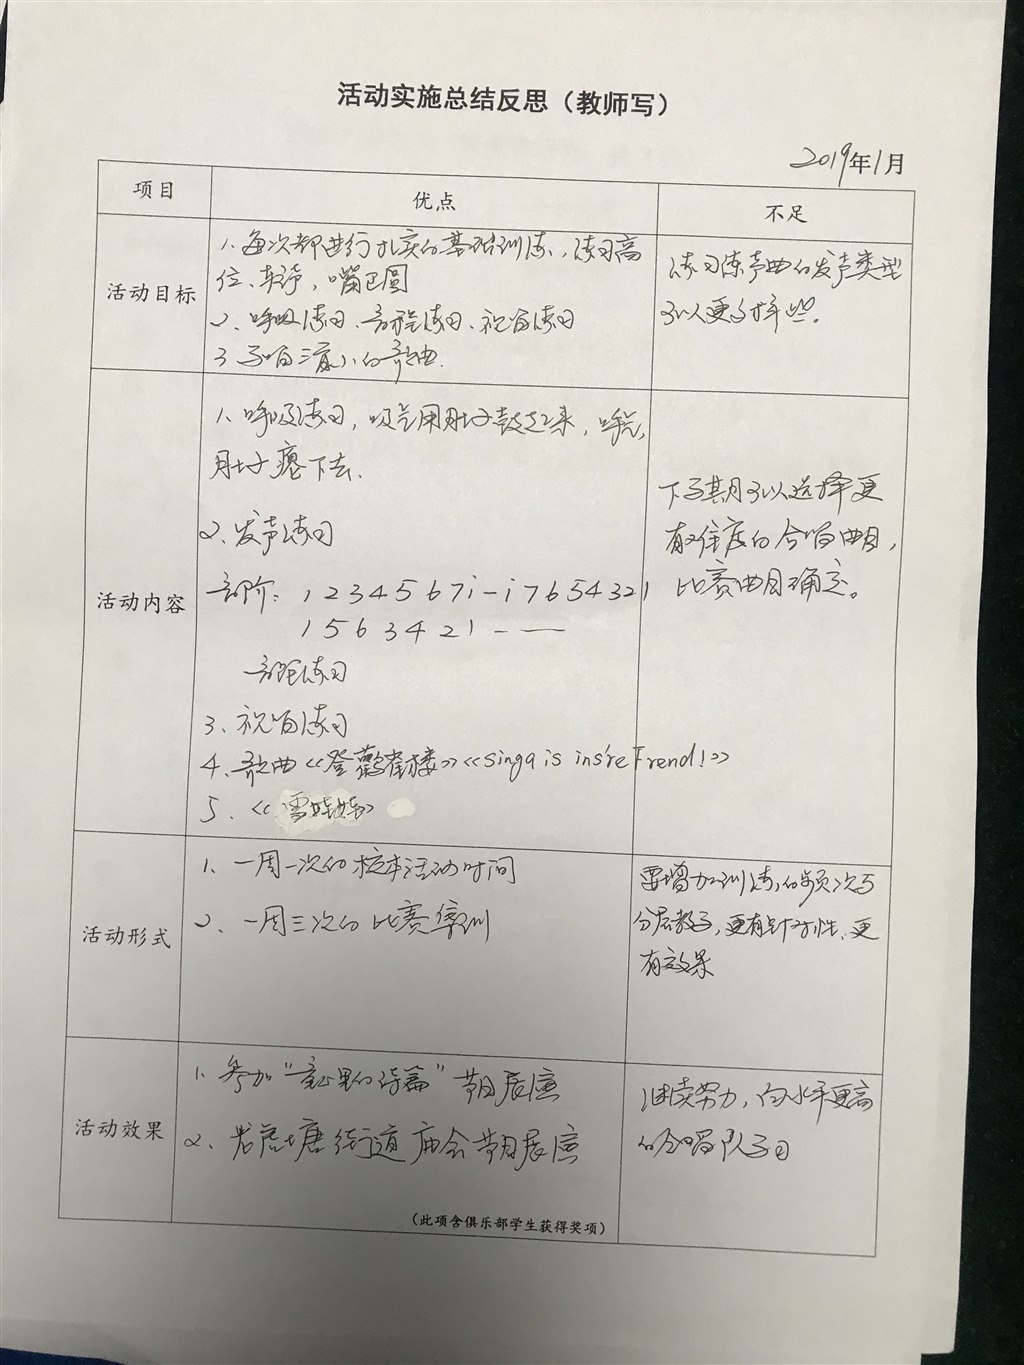 活动实施总结反思（教师写）
2019年1月
项目
优点
不足
活动目标
1、每次都进行扎实的基础训练，练习高
位、轻声，嘴巴圆
2、呼吸练习、音程练习、视唱练习
3 的歌曲.
练习练声曲的发声类型
可以更多样些。
活动内容
1、呼吸练习，吸气用肚子鼓起来，呼气,
肚子瘪下去.
2、发声练习
音阶：1 2 3 4 5 6 7 i - i 7 6 5 4 3 2 1
1 5 6 3 4 2 1 - —
音程练习
3、视唱练习
4、歌曲<<登鸛雀楼>><<singa is ins're Frend!>>
5、<<雪娃娃>
下学期可以选择更
有难度的合唱曲目，
比赛曲目确定。
活动形式
1、一周一次的校本活动时间
2、一周三次的比赛集训
要增加训练的频次与
分层教学，更有针对性、更
有效果
活动效果
1、参加“童心里的诗篇”节目展演
2、老虎塘街道庙会节目展演
（此项含俱乐部学生获得奖项）
继续努力，向水平更高
的合唱队学习